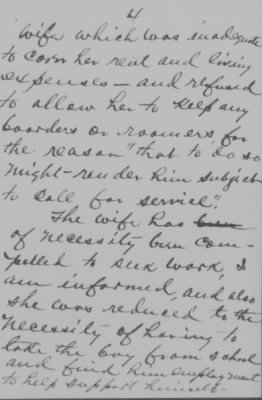 4
wife which was inadequate
to cover her rent and living
expenses — and refused
to allow her to keep any
boarders or roomers, for
the reason "that to do so
might render him subject
to call for service".
The wife has been
of necessity been com-
pelled to seek work, I
am informed, and also
she was reduced to the
necessity of having to
take the boy from school
and find him employment
to help support himself-